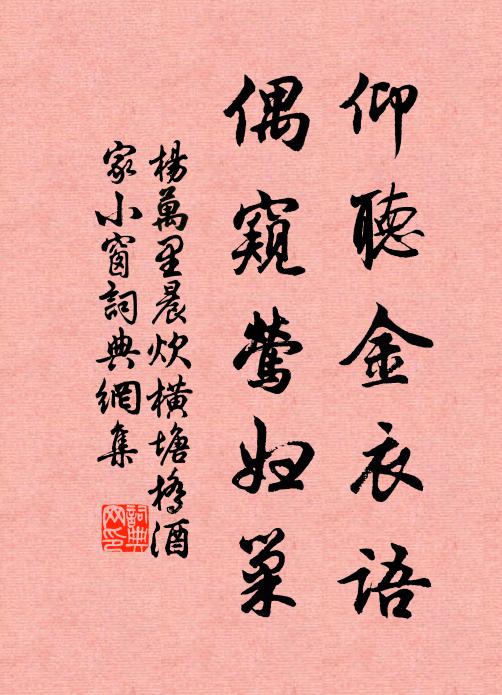 仰聽金衣語
偶窺鶯婦巢
楊萬里晨炊橫塘橋酒
家小窗詞典網集
詞典網印